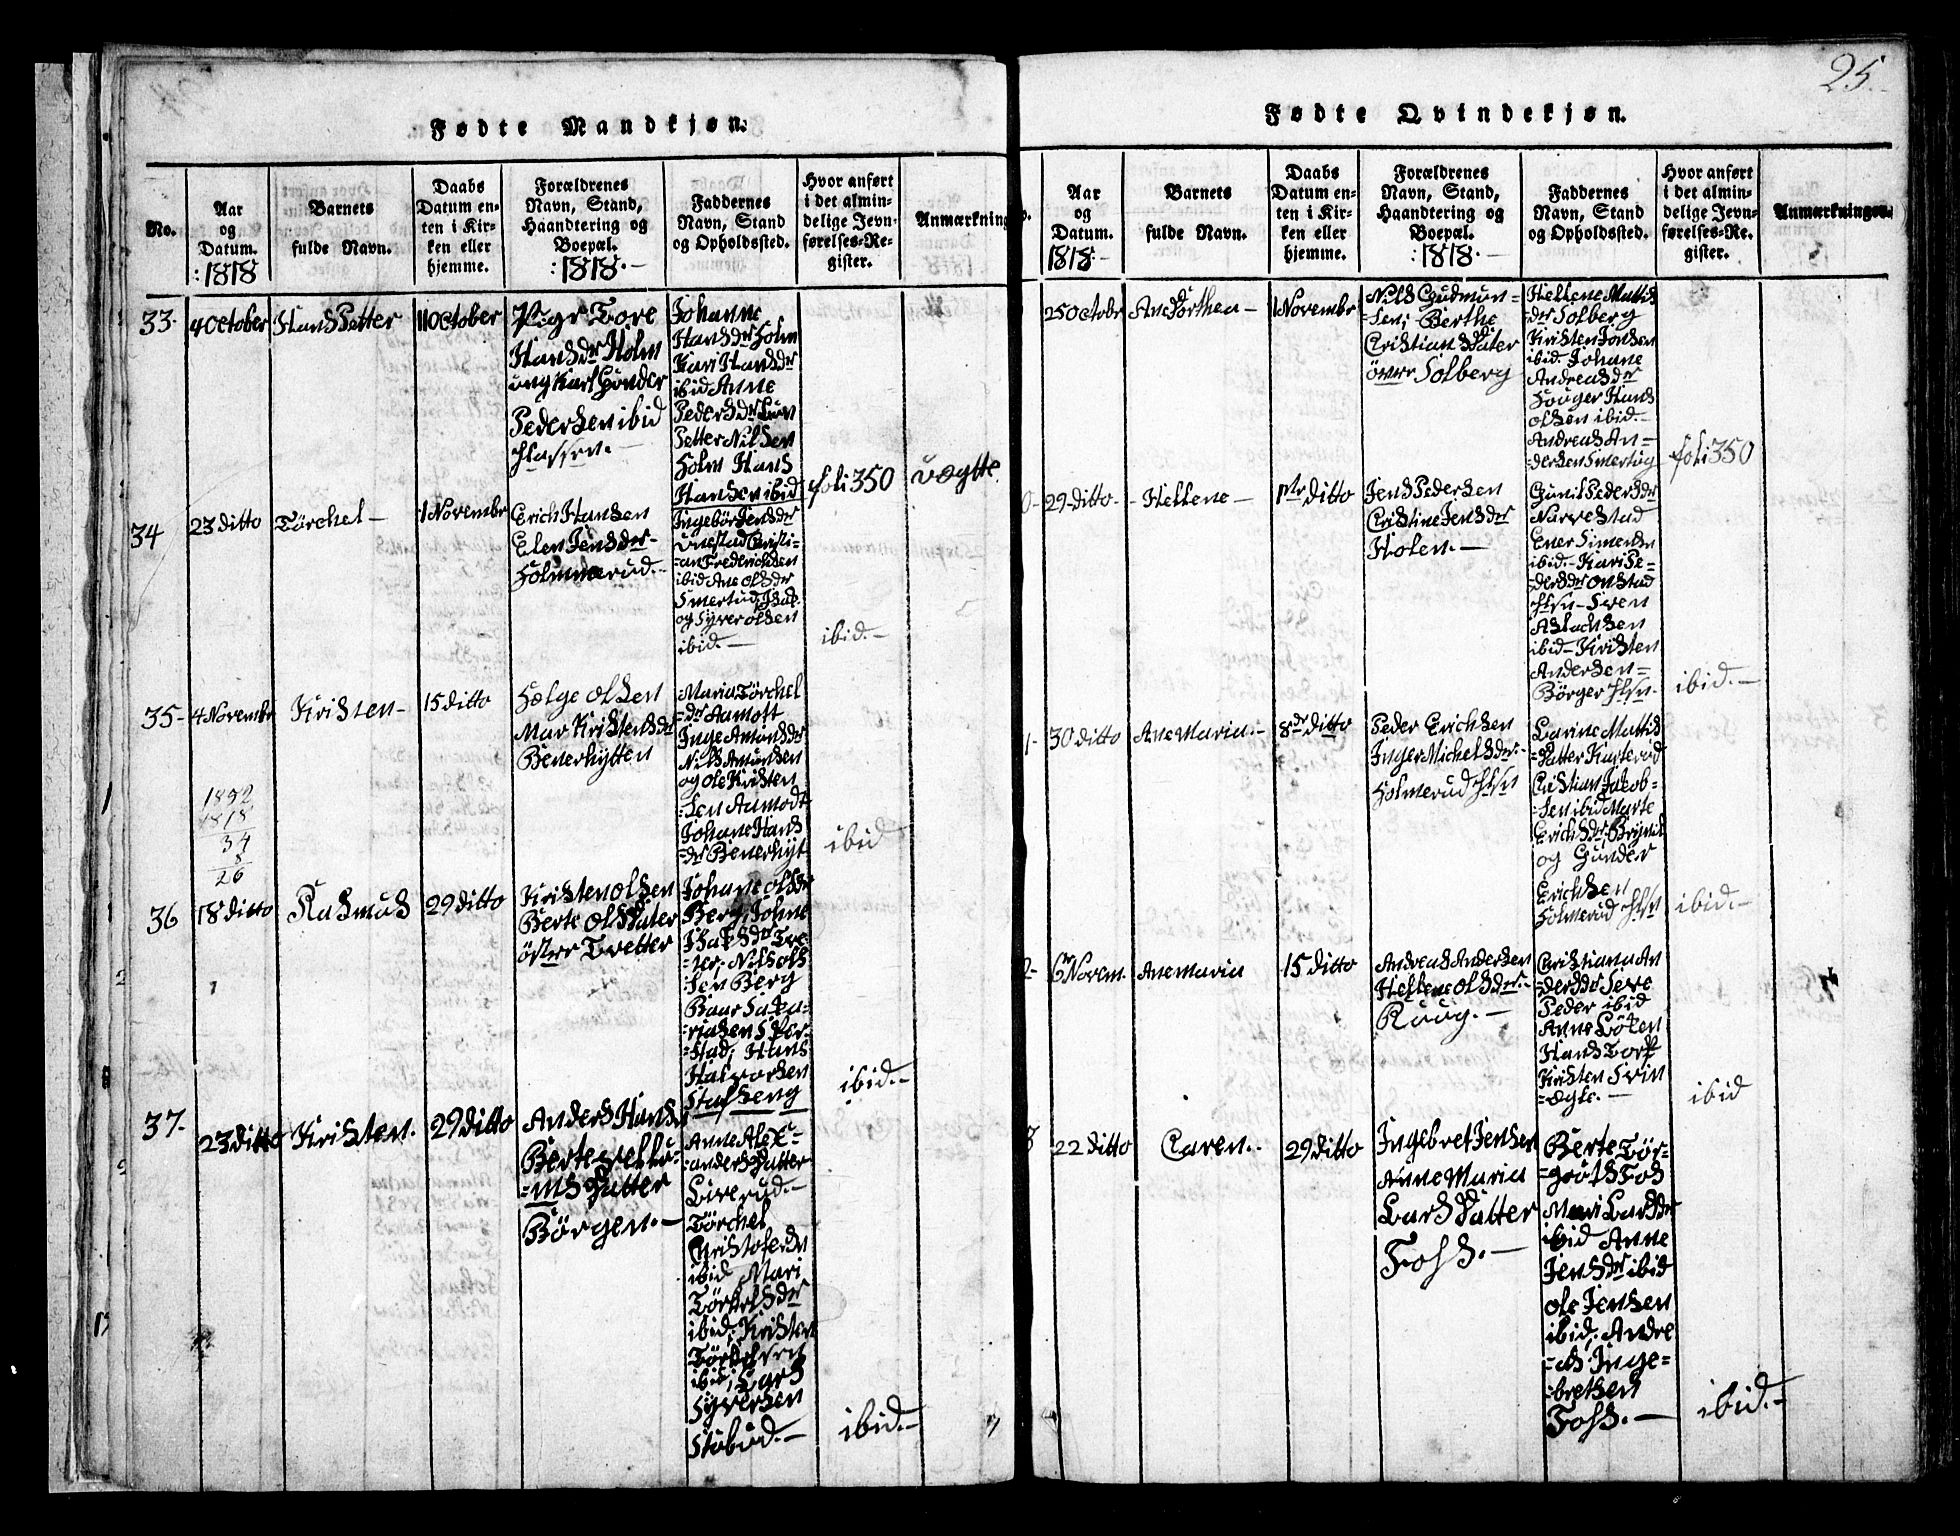 25.
Fødte Mandkjøn.
No.
Aar
og
Datum.
:1818
Barnets
fulde Navn.
Daabs
Datum en-
ten i Kir-
ken eller
hjemme.
Forældrenes
Navn, Stand,
Haandtering og
Boepæl.
:1818.-
Faddernes
Navn, Stand
og Opholdssted.
Hvor anført
i det almin-
delige Jevn-
førelses-Re-
gister.
Anmærkning
33.
4 October
Hans Petter
11 October
Pige Tore
Hansdr Holm
ung Karl Gunder
Pedersen ibid
Johanne
Hansdr Holm
Kari Hansdr
ibid Anne
Pedersdr
Petter Nilsen
Holm Hans
Hansen ibid
foli 350
uægtte
34
23 ditto
Törchel-
1 Novembr
Erich Hansen
Elen Jensdr-
Holmmerud.-
Ingebör Jensdr
Christi-
-an Fredrichsen
ibid Ane Olsdr
Smertud,
og Syver Olsen
ibid.-
ibid.-
35-
4 Novembr
Kristen-
15 ditto
Hælge Olsen
Mar Kristensdr
Beverhytten
Maria Törchel
-dr Aamott
Inge Amundsdr
Nils Amundsen
og Ole Kristen
-sen Aamodt
Johane Hans
-dr Beverhyt
ibid
1852
1818
34
8
26
36
18 ditto
Rasmus
29 ditto
Kristen Olsen
Berte Olsdater
öster Tvetter
Johane Olsdr
Berg, Johne
Isaksdr Tve-
-ter, Nils Ols
-sen Berg
Baar Saka-
-riasen Sper-
-stad, Hans
Halvorsen
Stafseng
ibid.-
37.
23 ditto
Kristen.
29 ditto
Anders Hansen
Berte Vellu-
-ms Datter
Börgen.-
Anne Alex-
-anders Datter
Liverud.-
Törchel
Christofersen
ibid Mari
Törkelsdr
ibid, Kristen
Törkelsen
ibid, Lars
Syversen
Stubud.-
ibid.-
Fødte Qvindekjøn.
Aar
og
Datum.
1818.-
Barnets
fulde Navn.
Daabs
Datum en-
ten i Kir-
ken eller
hjemme.
Forældrenes
Navn, Stand,
Haandtering og
Boepæl.
:1818.-
Faddernes
Navn, Stand
og Opholdssted.
Hvor anført
i det almin-
delige Jevn-
førelses-Re-
gister.
Anmærkninger.
25 Octobr
Ane Dorthea-
1 Novembr
Nils Gudmun-
-sen; Berthe
Cristians Dater
övere Solberg
Hellene Mattis
-dr Solberg
Kristen Jonsen
ibid. Johane
Andreasdr
Houger Hans
Olsen ibid.-
Andreas An-
-dersen Smertug
foli 350
29-ditto-
-Hellene-
1ste ditto
Jens Pedersen
Cristine Jensdr
Holen.-
Gunil Pedersdr
Narvestad
Ener Simensen
ibid.- Kari Pe-
-dersdr Onstad
Sven
Aslachsen
ibid- Kristen
Andersen-
Börger
ibid.-
30 ditto
Ane Maria.-
8de ditto
Peder Erichsen
Inger Michelsdr.-
Holmerud
Larine Mattis
-Datter Karterud
Cristian Jakob-
-sen ibid Marte
Erichsdr
og Gunder
Erichsen
Holmerud
ibid.-
6 Novem.
Ane Maria
15 ditto
Andreas Andersen
Hellene Olsdr.-
Christiana An
-dersdr
Peder ibid
Anne Löken
Hans Torp
Kristen Svin
-dgte.-
ibid
22 ditto
Caren.-
29 ditto
Ingebret Jensen
Anne Maria
Lars Datter
Foss.-
Berte Tör-
Foss
Mari Larsdr
ibid Anne
Jensdr ibid
Ole Jensen
ibid, Andre
-as Inge-
-bretsen
Foss.-
ibid.-